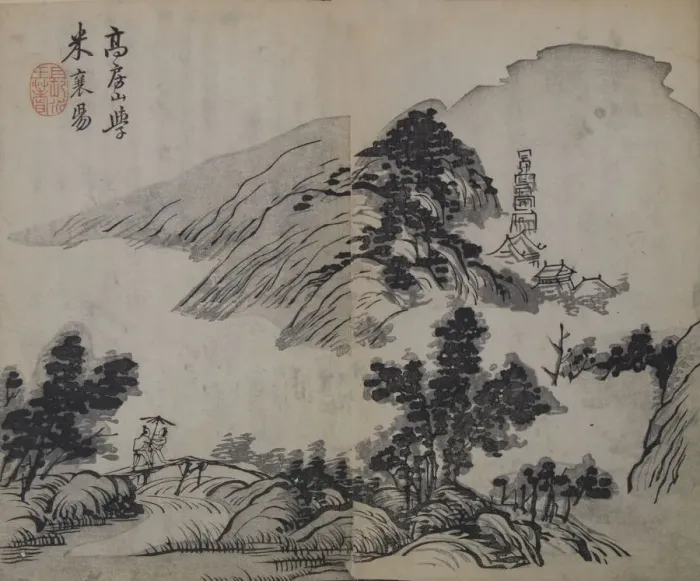 高房山學
米襄陽